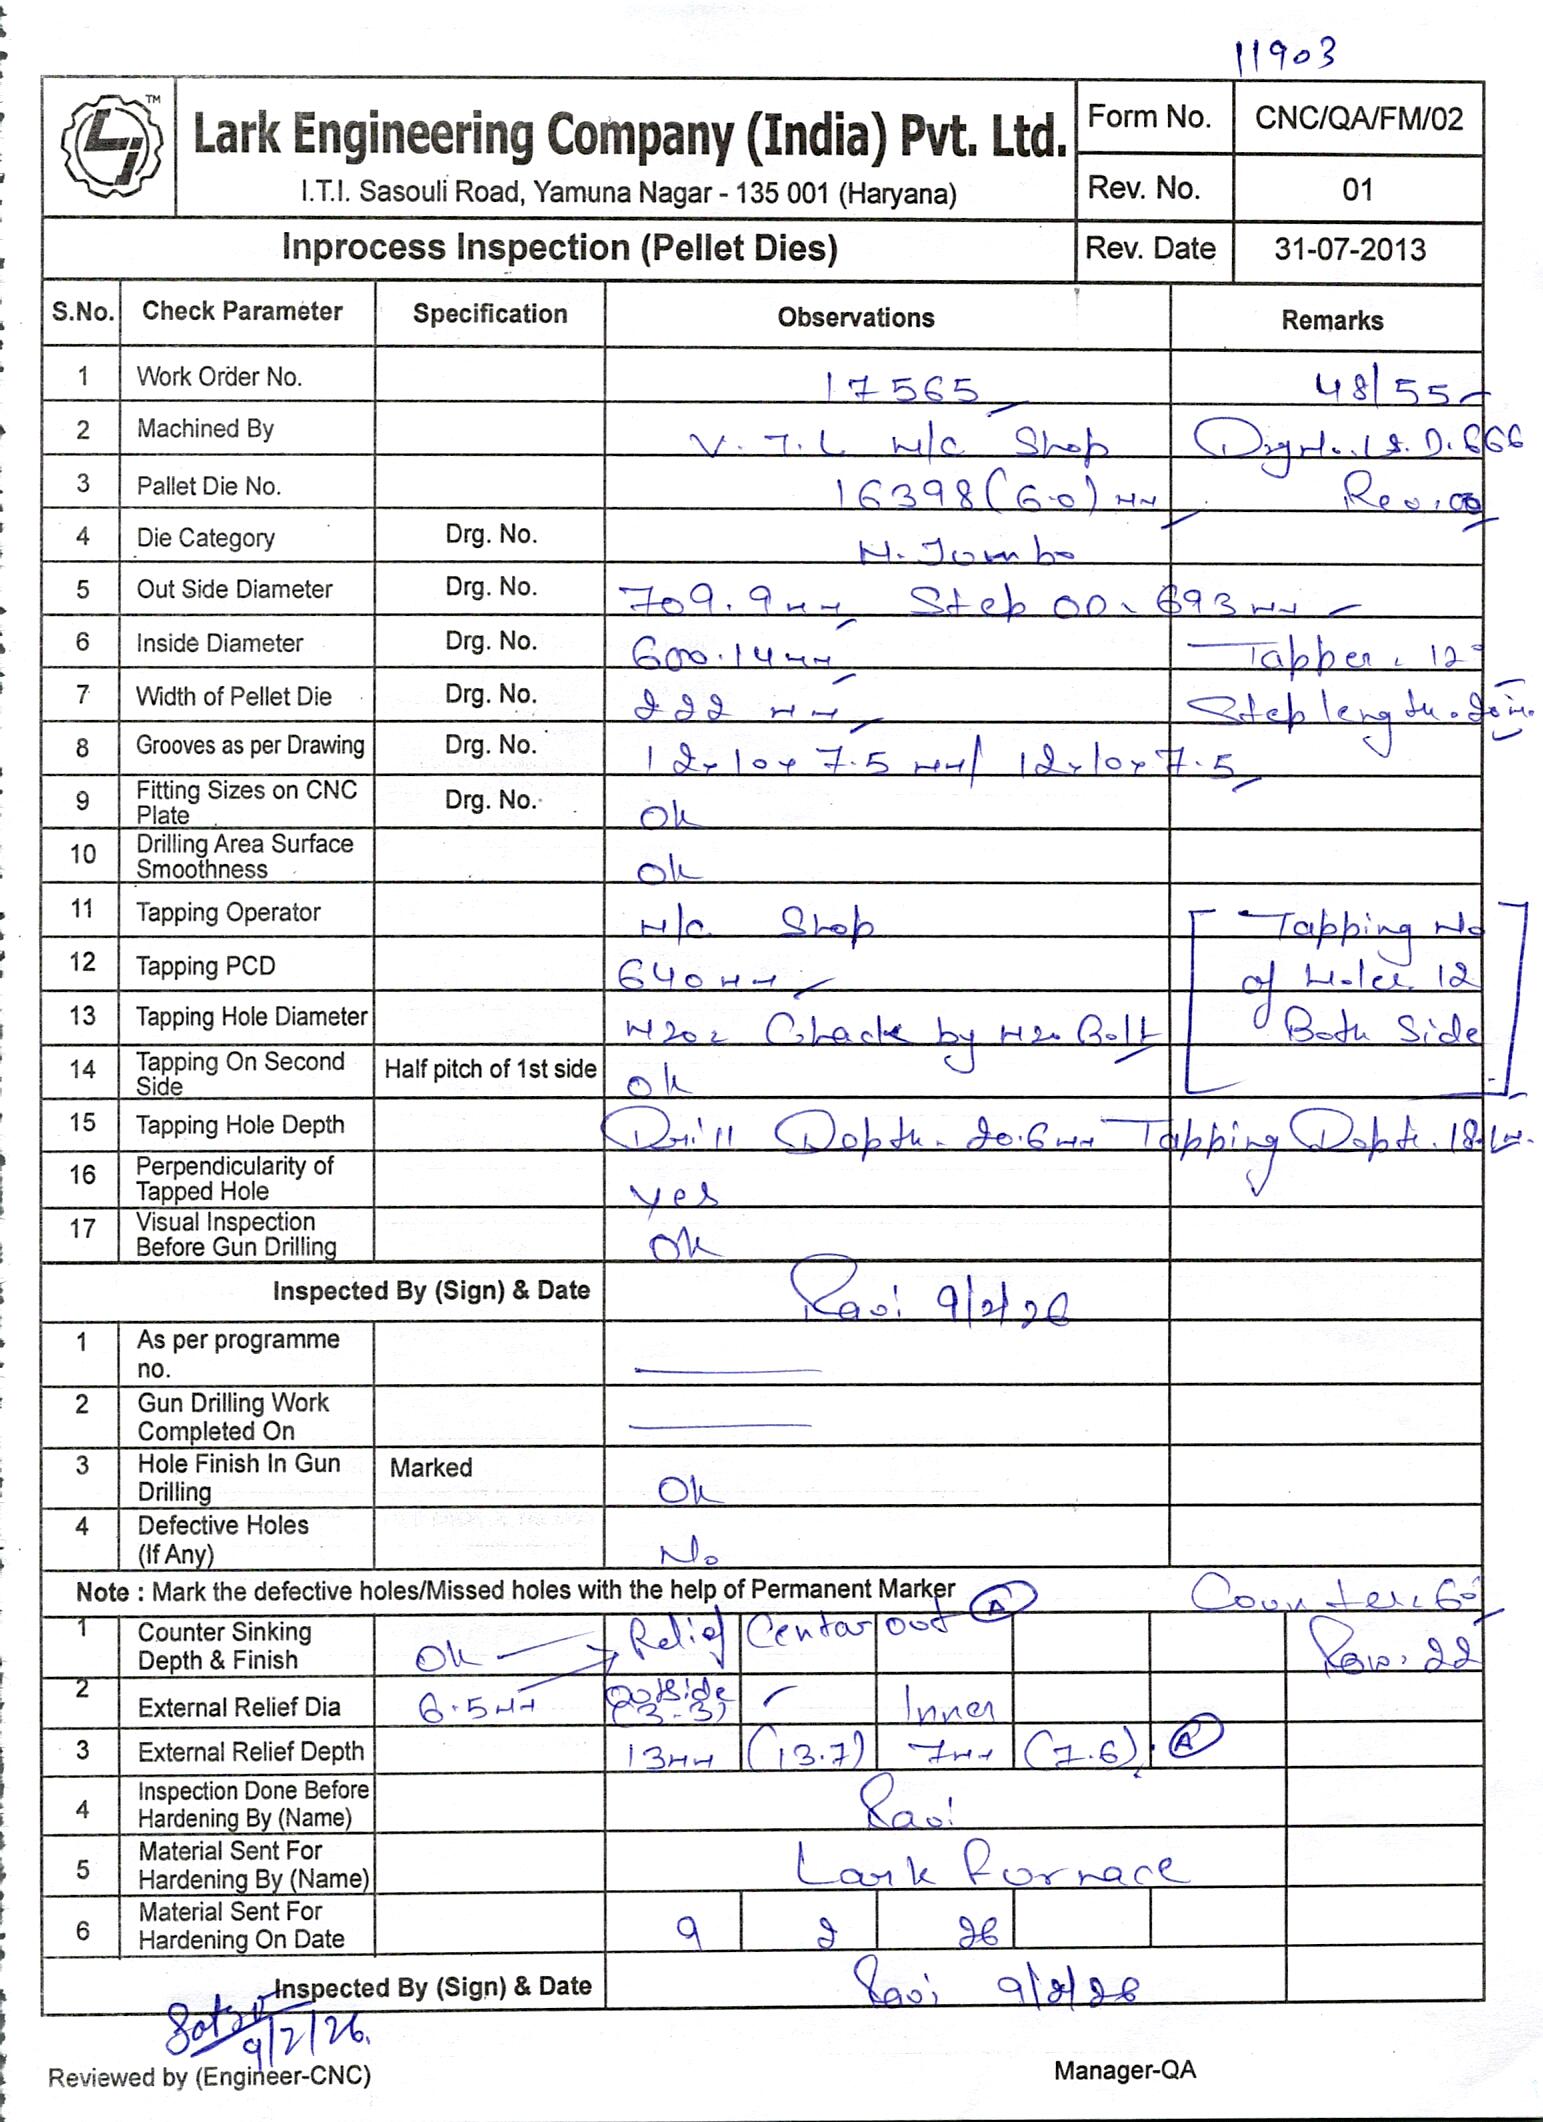 11903
TM
Lark Engineering Company (India) Pvt. Ltd.
I.T.I. Sasouli Road, Yamuna Nagar - 135 001 (Haryana)
Form No. CNC/QA/FM/02
Rev. No. 01
Inprocess Inspection (Pellet Dies) Rev. Date 31-07-2013
S.No. Check Parameter Specification Observations Remarks
1 Work Order No. 17565 48/55
2 Machined By V.T.L M/C Shop Drg No. L.S.D. 666
3 Pallet Die No. 16398 (6.0) mm Rev. 00
4 Die Category Drg. No. M. Jumbo
5 Out Side Diameter Drg. No. 709.9 mm Step OD. 693 mm
6 Inside Diameter Drg. No. 600.14 mm Tapper. 12°
7 Width of Pellet Die Drg. No. 222 mm Step length. 20 m.
8 Grooves as per Drawing Drg. No. 12x10x7.5 mm / 12x10x7.5
9 Fitting Sizes on CNC Plate Drg. No. Ok
10 Drilling Area Surface Smoothness Ok
11 Tapping Operator M/C Shop Tapping No
12 Tapping PCD 640 mm of Holes. 12
13 Tapping Hole Diameter M20 Chack by M20 Bolt Both Side
14 Tapping On Second Side Half pitch of 1st side Ok
15 Tapping Hole Depth Drill Depth. 20.6 mm Tapping Depth. 18.1 m.
16 Perpendicularity of Tapped Hole yes
17 Visual Inspection Before Gun Drilling Ok
Inspected By (Sign) & Date Ravi 9/2/26
1 As per programme no.
2 Gun Drilling Work Completed On
3 Hole Finish In Gun Drilling Marked Ok
4 Defective Holes (If Any) No
Note : Mark the defective holes/Missed holes with the help of Permanent Marker A Counter. 60°
1 Counter Sinking Depth & Finish Ok Relief Centar out Row. 22
2 External Relief Dia 6.5 mm Outside (3-3) Inner
3 External Relief Depth 13mm (13.7) 7mm (7.6). A
4 Inspection Done Before Hardening By (Name) Ravi
5 Material Sent For Hardening By (Name) Lark Furnace
6 Material Sent For Hardening On Date 9 2 26
Inspected By (Sign) & Date Ravi 9/2/26
9/2/26.
Reviewed by (Engineer-CNC) Manager-QA